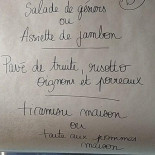 Salade de gésiers
ou
Assiette de jambon
Pavé de truite, risotto
oignons et poireaux
tiramisu maison
ou
tarte aux pommes
maison